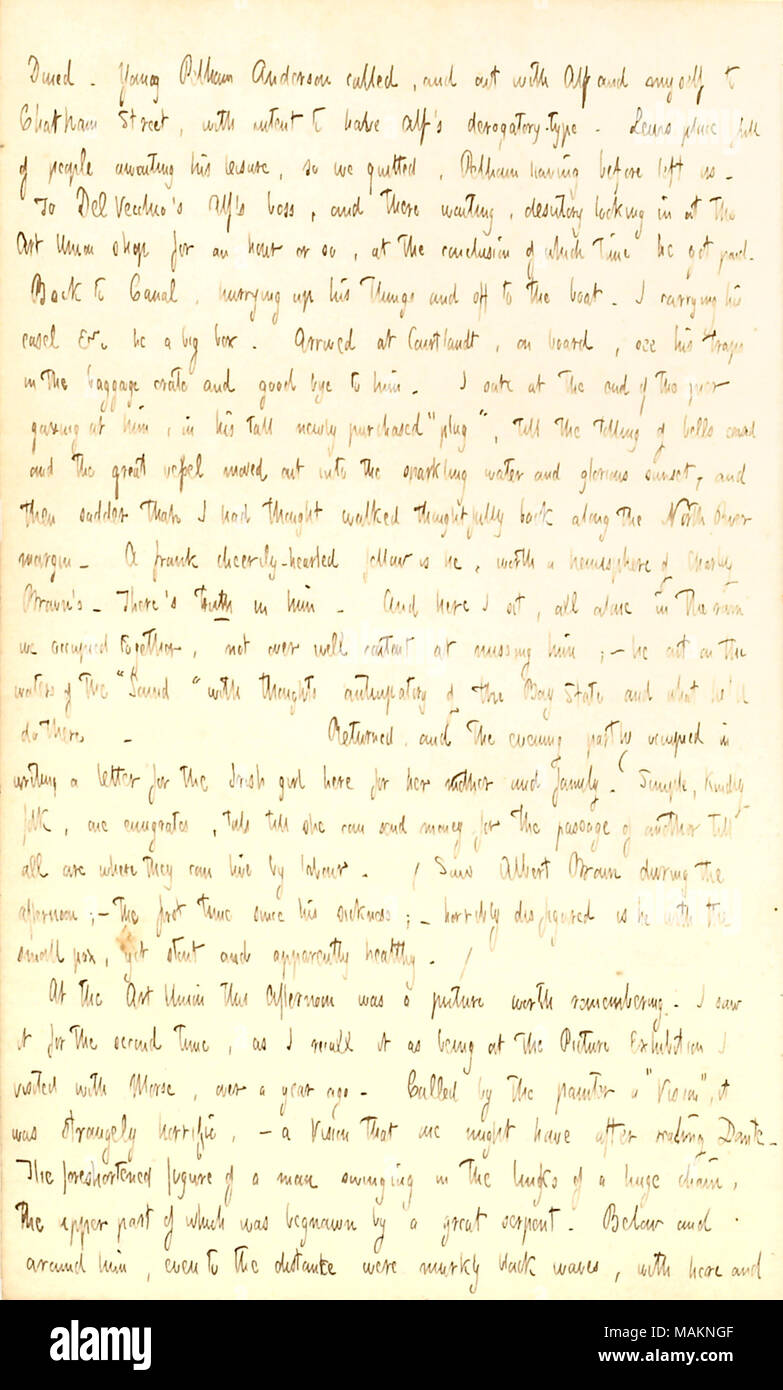 Dined. Young Pelham Anderson called, and out with Alf and myself to
Chatham Street, with intent to have Alf's derogatory-type. Lewis place full
of people awaiting his leisure, so we quitted, Pelham having before left us.
To Del Vecchio's Alf's boss, and there waiting, desultory looking in at the
Art Union shop for an hour or so, at the conclusion of which time he got paid.
Back to Canal, hurrying up his things and off to the boat. I carrying his
easel &c, he a big box. Arrived at Courtlandt, on board, see his "traps"
in the baggage crate and good bye to him. I sate at the end of the pier
gazing at him, in his tall newly purchased "plug", till the tolling of bells ceased
and the great vessel moved out into the sparkling water and glorious sunset, and
then sadder than I had thought walked thoughtfully back along the North River
margin. A frank cheerily-hearted fellow is he, worth a hemisphere of Charley
Brown's. There's truth in him. And here I sit, all alone in the room
we occupied together, not over well content at missing him; — he out on the
waters of the "Sound" with thoughts anticipatory of the Bay State and what he'll
do there. Returned, and the evening partly occupied in
writing a letter for the Irish girl here for her mother and family. (Simple, kindly
folk, one emigrates, toils till she can send money for the passage of another till
all are where they can live by labour. / Saw Albert Brown during the
afternoon; — the first time since his sickness; — horribly disfigured is he with the
small pox, yet stout and apparently healthy. /
At the Art Union this afternoon was a picture worth remembering. I saw
it for the second time, as I recall it as being at the Picture Exhibition I
visited with Morse, over a year ago. Called by the painter a "Vision", it
was strangely horrific, — a Vision that one might have after reading Dante.
The foreshortened figure of a man swinging in the links of a huge chain,
the upper part of which was begnawn by a great serpent. Below and
around him, even to the distance were murky black waves, with here and
alamy
Image ID: MAKNGF
www.alamy.com